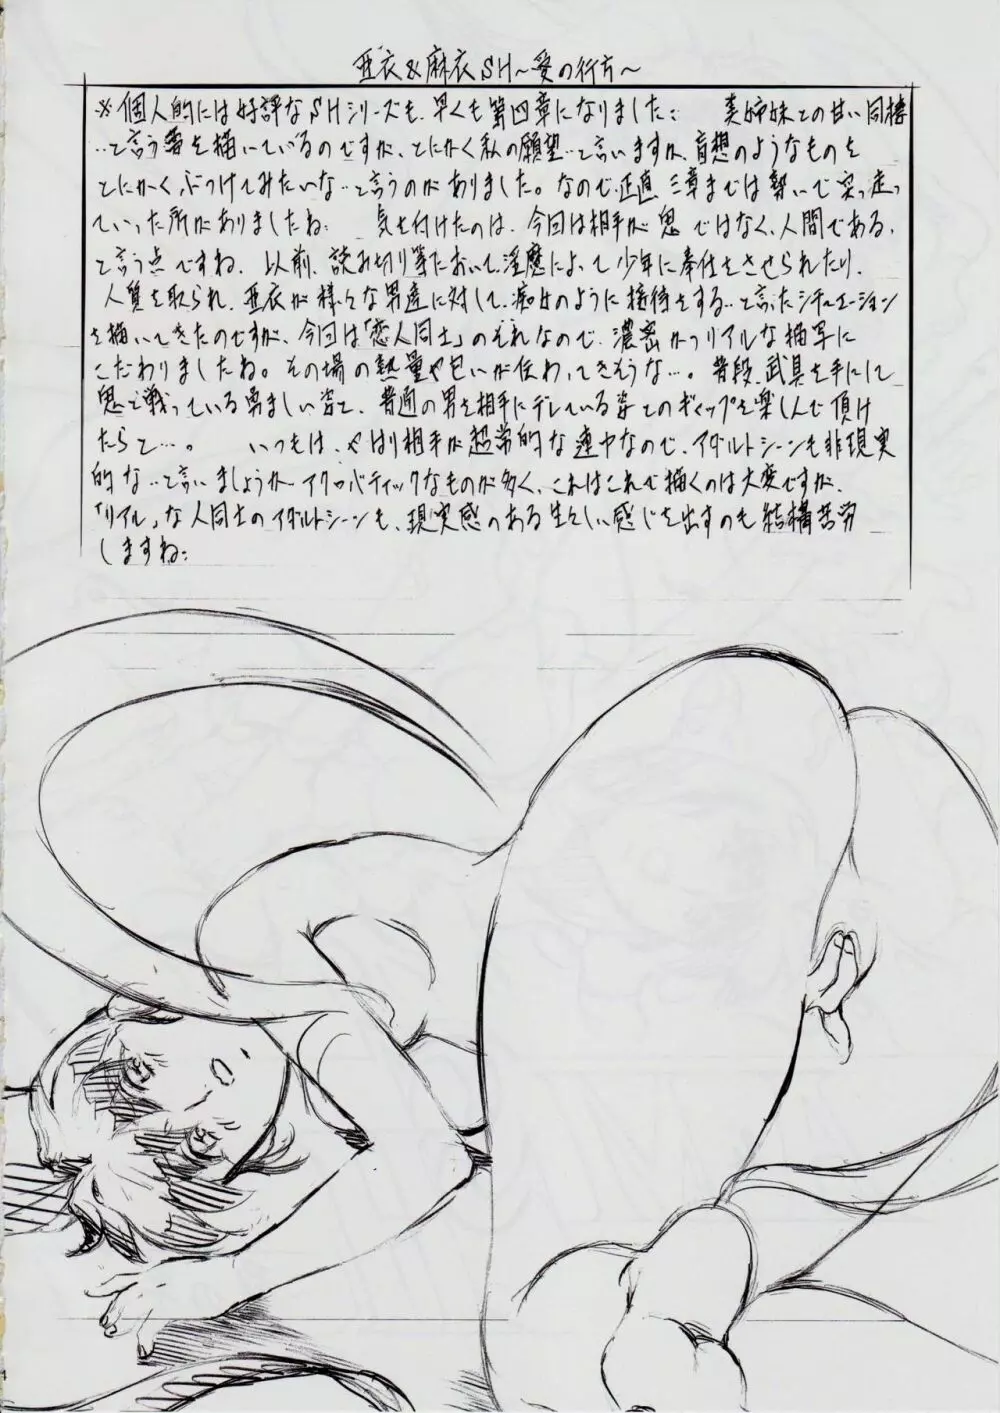 亜衣&麻衣SH~愛の行方~
※個人的には好評なSHシリーズも、早くも第四章になりました: 美姉妹との甘い同棲
…と言う夢を描いているのですが、とにかく私の願望…と言いますか、盲想のようなものを
とにかくぶつけてみたいな…と言うのがありました。なので、正直三章までは勢いで突っ走っ
ていった所がありましたね: 気を付けたのは、今回は相手が鬼ではなく、人間である、
と言う点ですね。以前、読み切り等において、淫魔によって少年に奉仕をさせられたり、
人質を取られ、亜衣が様々な男達に対して、痴女のように接待をする…と言ったシチュエーション
を描いてきたのですが、今回は「恋人同士」のそれなので、濃密かつリアルな描写に
こだわりましたね。その場の熱量や匂いが伝わってきそうな…。普段、武具を手にして
鬼と戦っている勇ましい姿と、普通の男を相手にデレている姿とのギャップを楽しんで頂け
たらと…。 いつもは、やはり相手が超常的な連中なので、アダルトシーンも非現実
的な…と言いましょうか…アクロバティックなものが多く、これはこれで描くのは大変ですが、
「リアル」な人同士のアダルトシーンも、現実感のある生々しい感じを出すのも結構苦労
しますね: